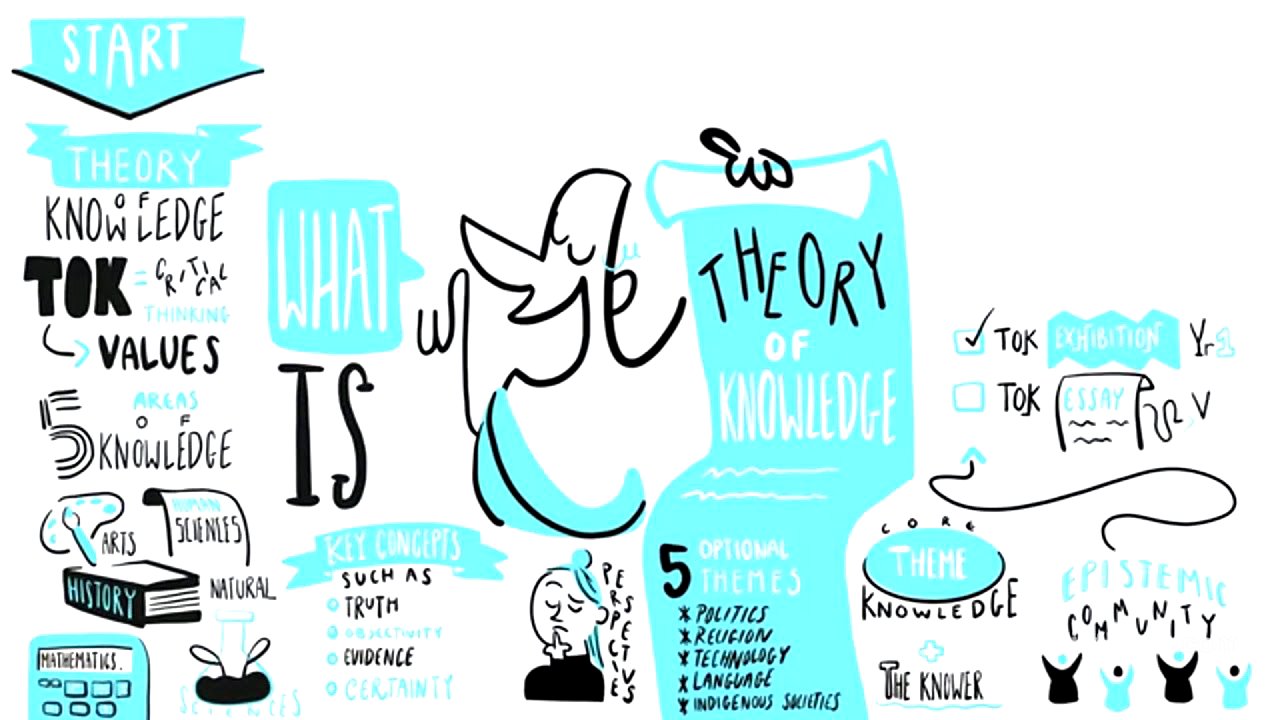 START
THEORY
OF
KNOWLEDGE
TOK = CRITICAL
THINKING
VALUES
5 AREAS
OF
KNOWLEDGE
ARTS
HUMAN
SCIENCES
HISTORY
NATURAL
SCIENCES
MATHEMATICS.
WHAT
IS
KEY CONCEPTS
SUCH AS
TRUTH
OBJECTIVITY
EVIDENCE
CERTAINTY
PERSPECTIVES
THEORY
OF
KNOWLEDGE
5 OPTIONAL
THEMES
* POLITICS
* RELIGION
* TECHNOLOGY
* LANGUAGE
* INDIGENOUS SOCIETIES
TOK EXHIBITION Yr1
TOK ESSAY
CORE
THEME
KNOWLEDGE
+
THE KNOWER
EPISTEMIC
COMMUNITY